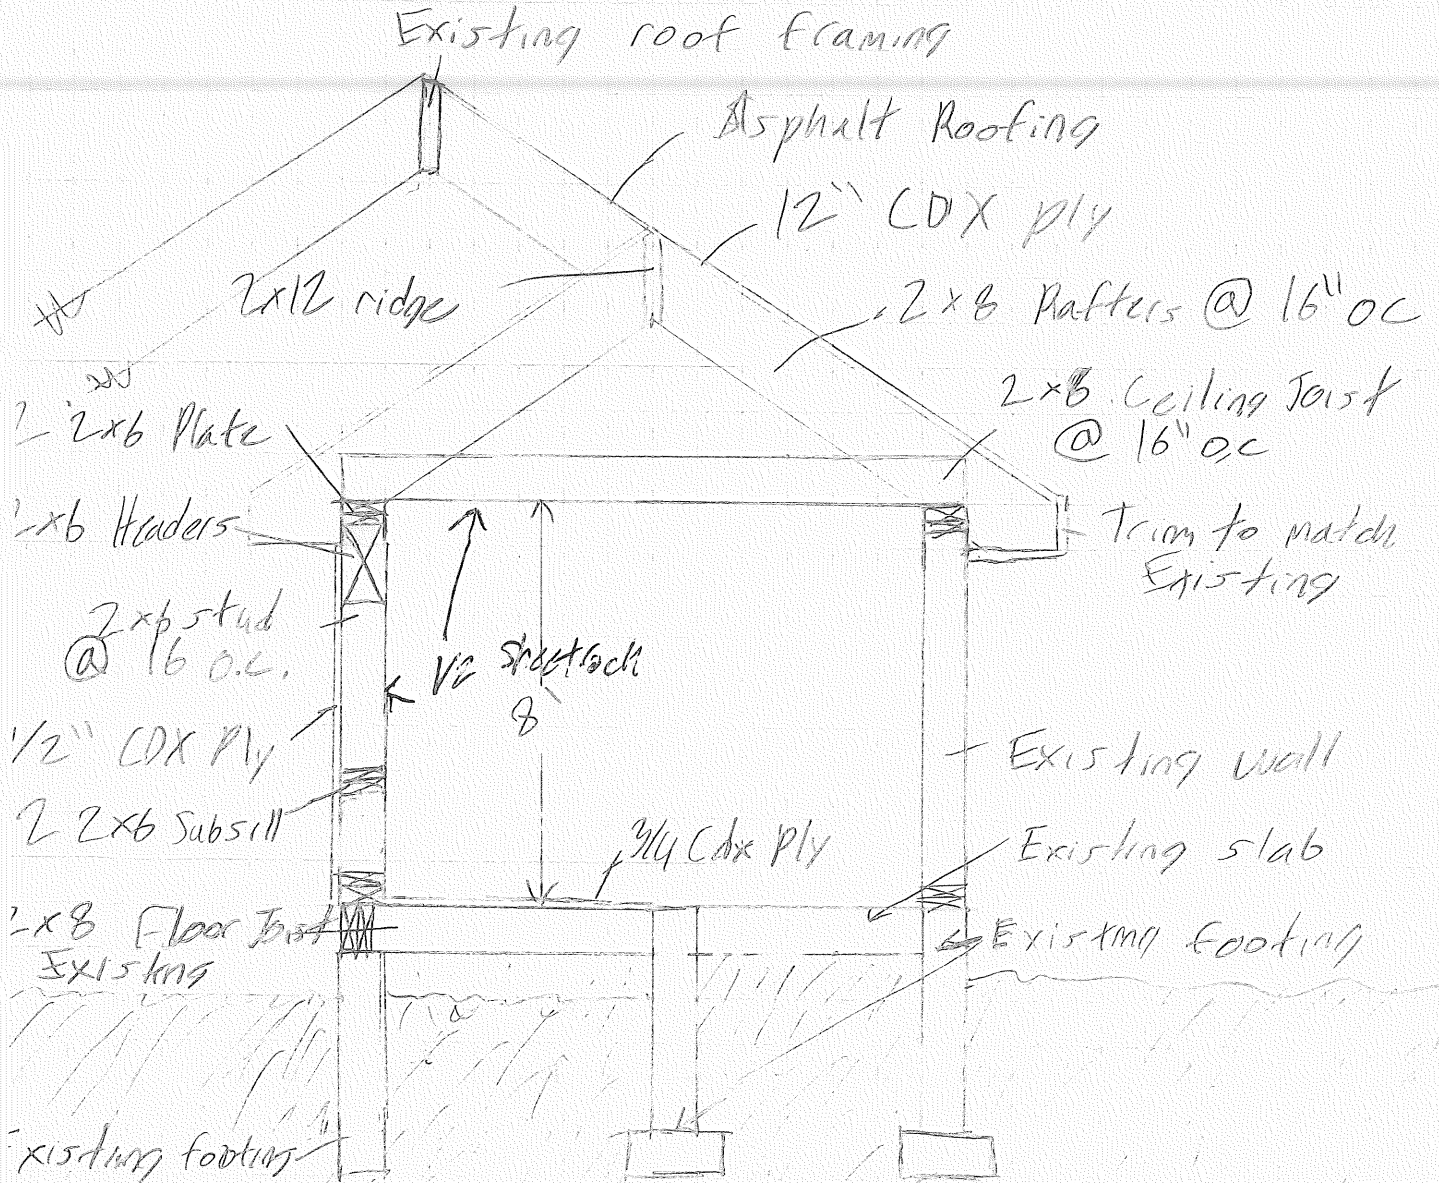 Existing roof framing
Asphalt Roofing
12" CDX ply
2x12 ridge
2x8 Rafters @ 16" OC
2x8 Ceiling Joist
@ 16" O,C
2 2x6 Plate
2x6 Headers
Trim to match
Existing
2x6 stud
@ 16 O.C.
1/2 Sheetrock
8'
1/2" CDX Ply
Existing wall
2 2x6 Subsill
3/4 Cdx Ply
Existing slab
2x8 Floor Joist
Existing
Existing footing
Existing footing